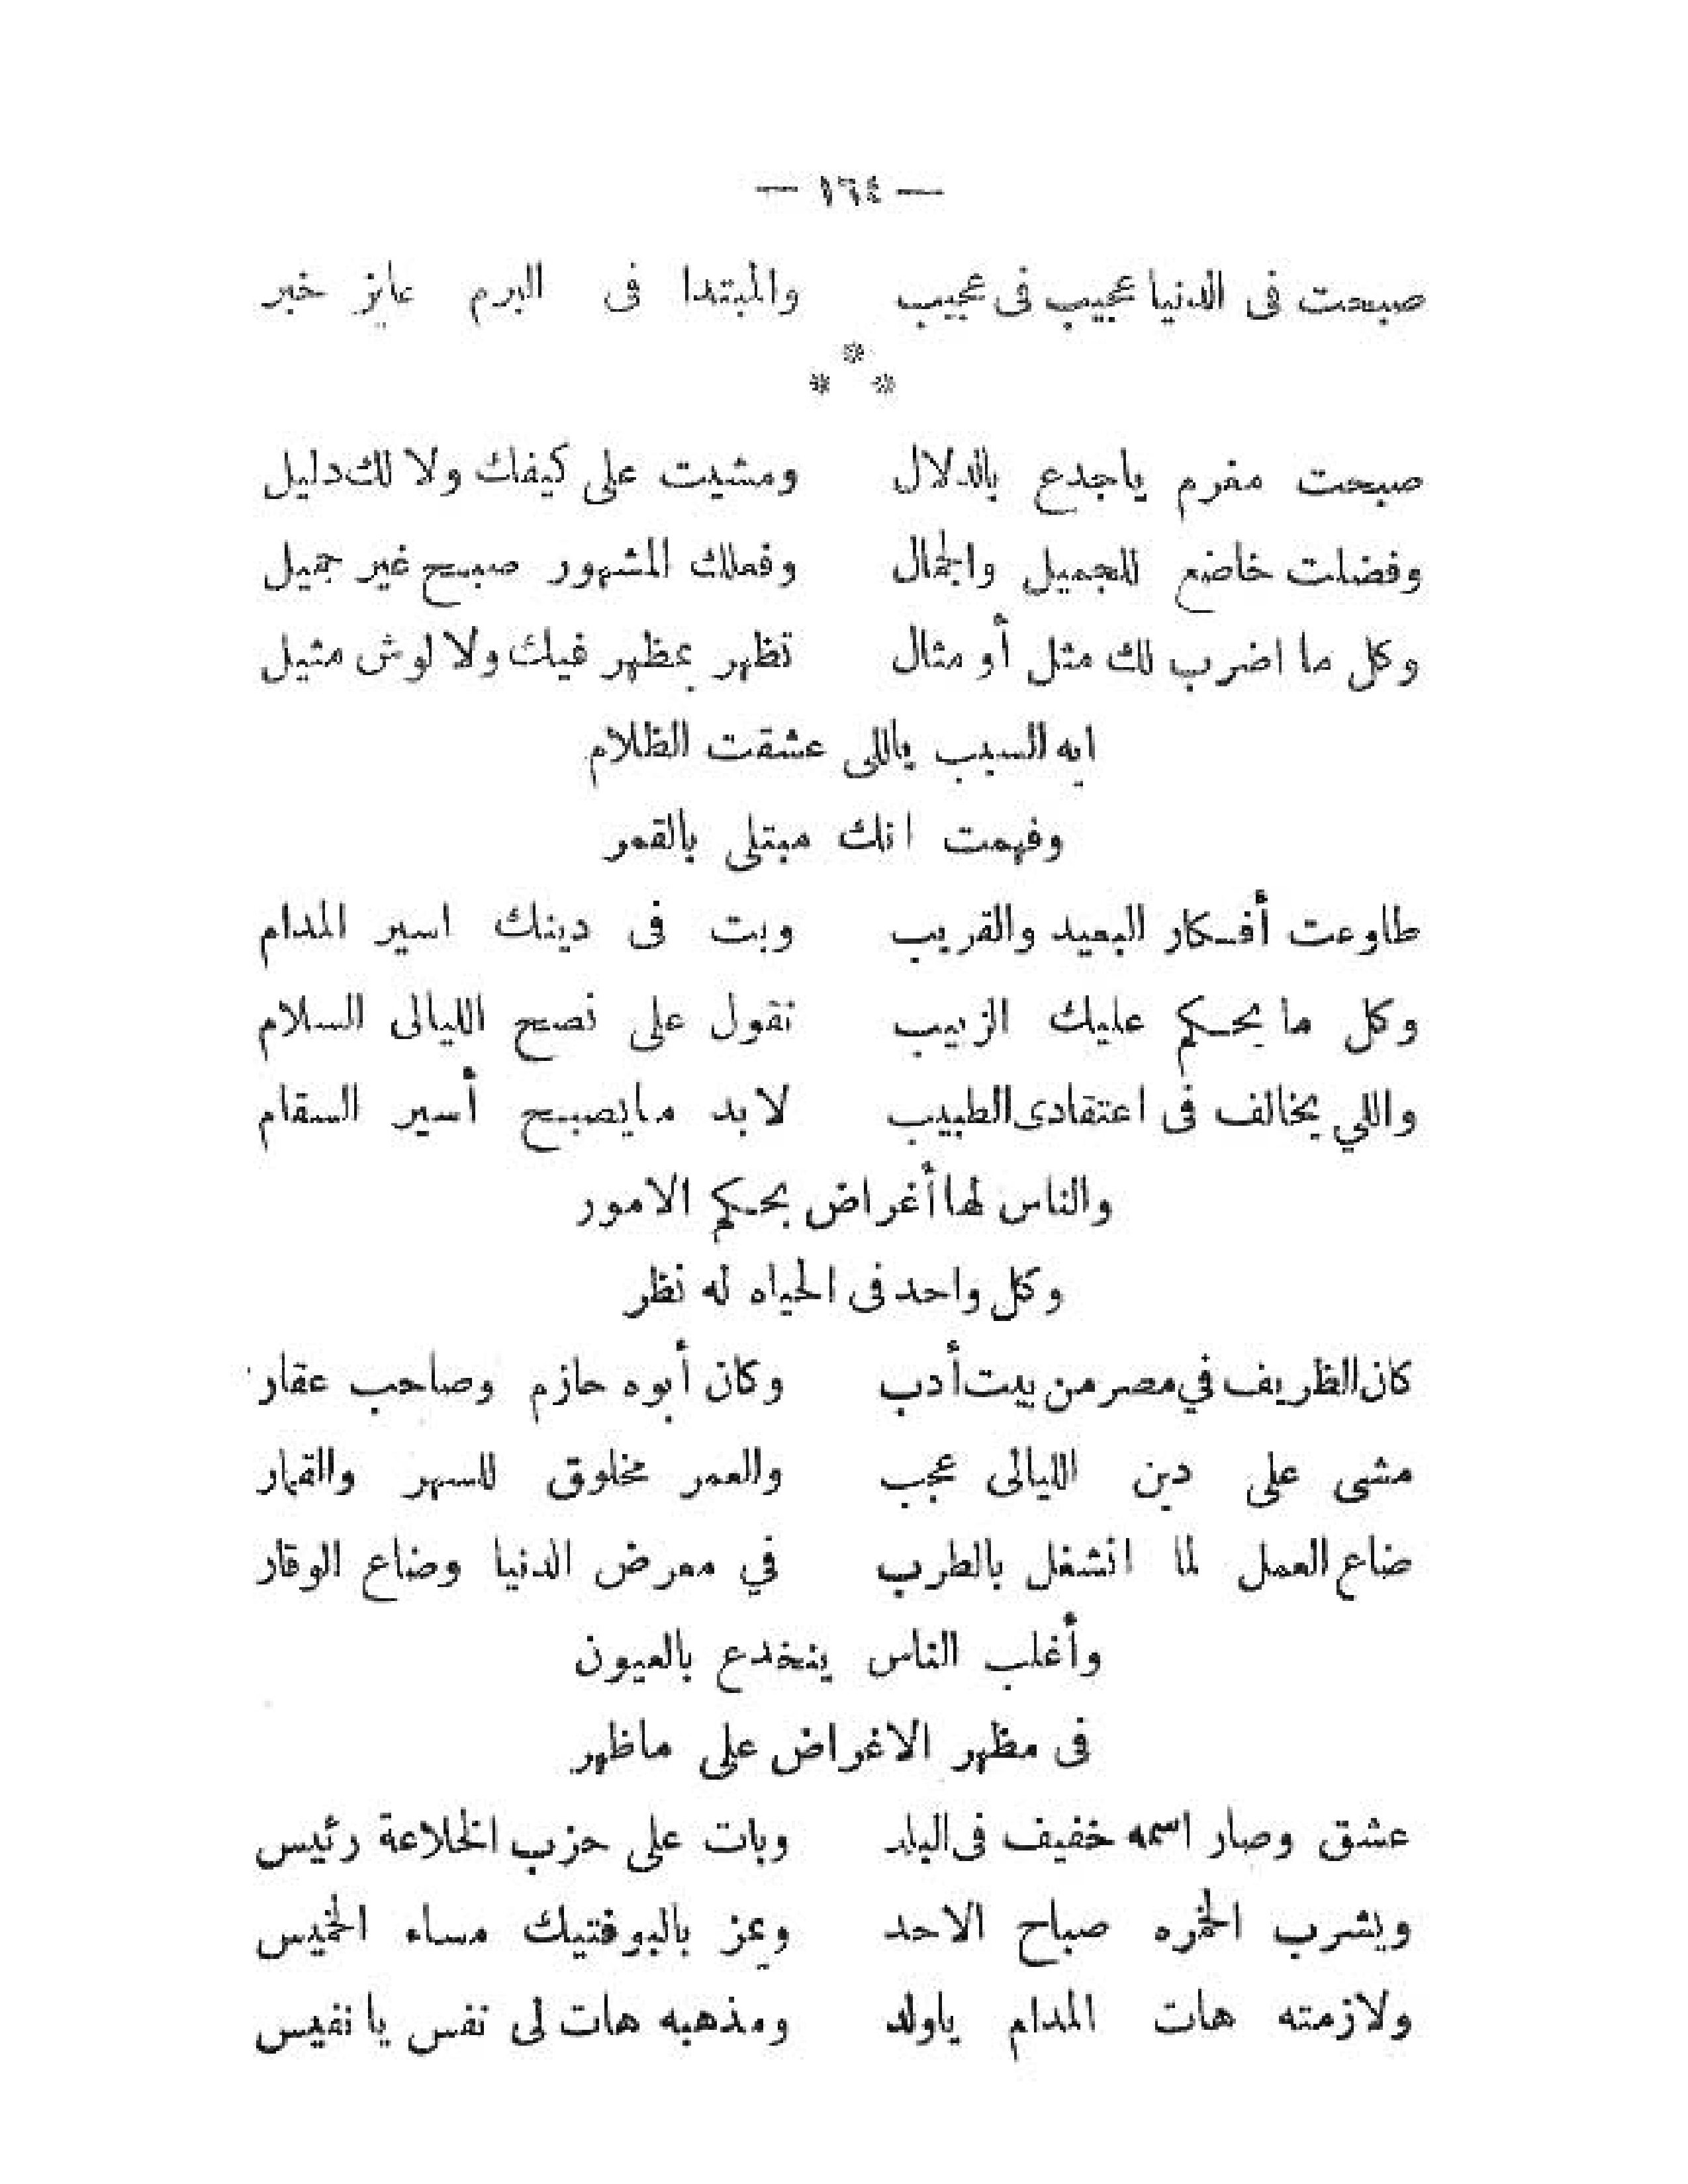 — ١٦٤ —
صبحت فى الدنيا عجيب فى عجيب والمبتدا فى البرم عايز خبر
*
* *
صبحت مغرم ياجدع بالدلال ومشيت على كيفك ولا لك دليل
وفضلت خاضع للجميل والجمال وفعلك المشهور صبح غير جميل
وكل ما اضرب لك مثل أو مثال تظهر بمظهر فيك ولا لوش مثيل
ايه السبب ياللى عشقت الظلام
وفهمت انك مبتلى بالقمر
طاوعت أفكار البعيد والقريب وبت فى دينك اسير المدام
وكل ما يحكم عليك الزبيب تقول على نصح الليالى السلام
واللي يخالف فى اعتقادى الطبيب لابد مايصبح أسير السقام
والناس لها أغراض بحكم الامور
وكل واحد فى الحياه له نظر
كان الظريف في مصر من بيت أدب وكان أبوه حازم وصاحب عقار
مشى على دين الليالى عجب والعمر مخلوق للسهر والقمار
ضاع العمل لما انشغل بالطرب في معرض الدنيا وضاع الوقار
وأغلب الناس ينخدع بالعيون
فى مظهر الاغراض على ماظهر
عشق وصار اسمه خفيف فى البلد وبات على حزب الخلاعة رئيس
ويشرب الخمره صباح الاحد ويمز بالبوفتيك مساء الخميس
ولازمته هات المدام ياولد ومذهبه هات لى نفس يا نفيس